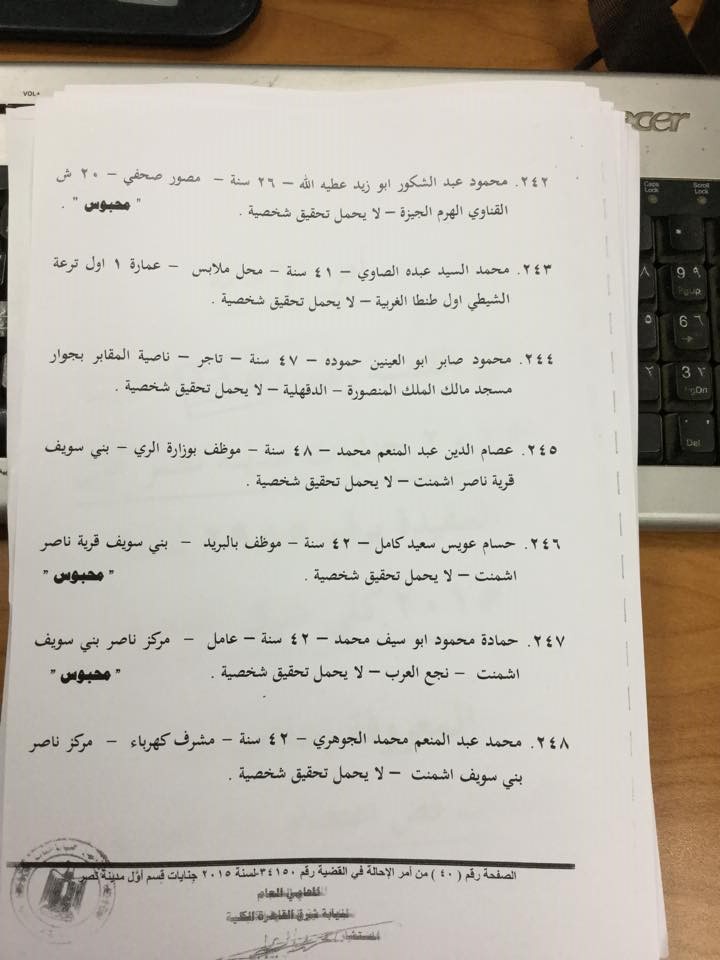 VOL+
acer
Caps Lock
Scroll Lock
٢٤٢. محمود عبد الشكور ابو زيد عطيه الله – ٢٦ سنة – مصور صحفي – ٢٠ ش
القناوي الهرم الجيزة – لا يحمل تحقيق شخصية . " محبوس " .
٢٤٣. محمد السيد عبده الصاوي – ٤١ سنة – محل ملابس – عمارة ١ اول ترعة
الشيطي اول طنطا الغربية – لا يحمل تحقيق شخصية .
٢٤٤. محمود صابر ابو العينين حموده – ٤٧ سنة – تاجر – ناصية المقابر بجوار
مسجد مالك الملك المنصورة – الدقهلية – لا يحمل تحقيق شخصية .
٢٤٥. عصام الدين عبد المنعم محمد – ٤٨ سنة – موظف بوزارة الري – بني سويف
قرية ناصر اشمنت – لا يحمل تحقيق شخصية .
٢٤٦. حسام عويس سعيد كامل – ٤٢ سنة – موظف بالبريد – بني سويف قرية ناصر
اشمنت – لا يحمل تحقيق شخصية . " محبوس "
٢٤٧. حمادة محمود ابو سيف محمد – ٤٢ سنة – عامل – مركز ناصر بني سويف
اشمنت – نجع العرب – لا يحمل تحقيق شخصية . " محبوس "
٢٤٨. محمد عبد المنعم محمد الجوهري – ٤٢ سنة – مشرف كهرباء – مركز ناصر
بني سويف اشمنت – لا يحمل تحقيق شخصية .
الصفحة رقم ( ٤٠ ) من أمر الإحالة في القضية رقم ٣٤١٥٠ لسنة ٢٠١٥ جنايات قسم أول مدينة نصر
المحامي العام
لنيابة شرق القاهرة الكلية
9 ٩
PgUp
6 ٦
3 ٣
PgDn
Del